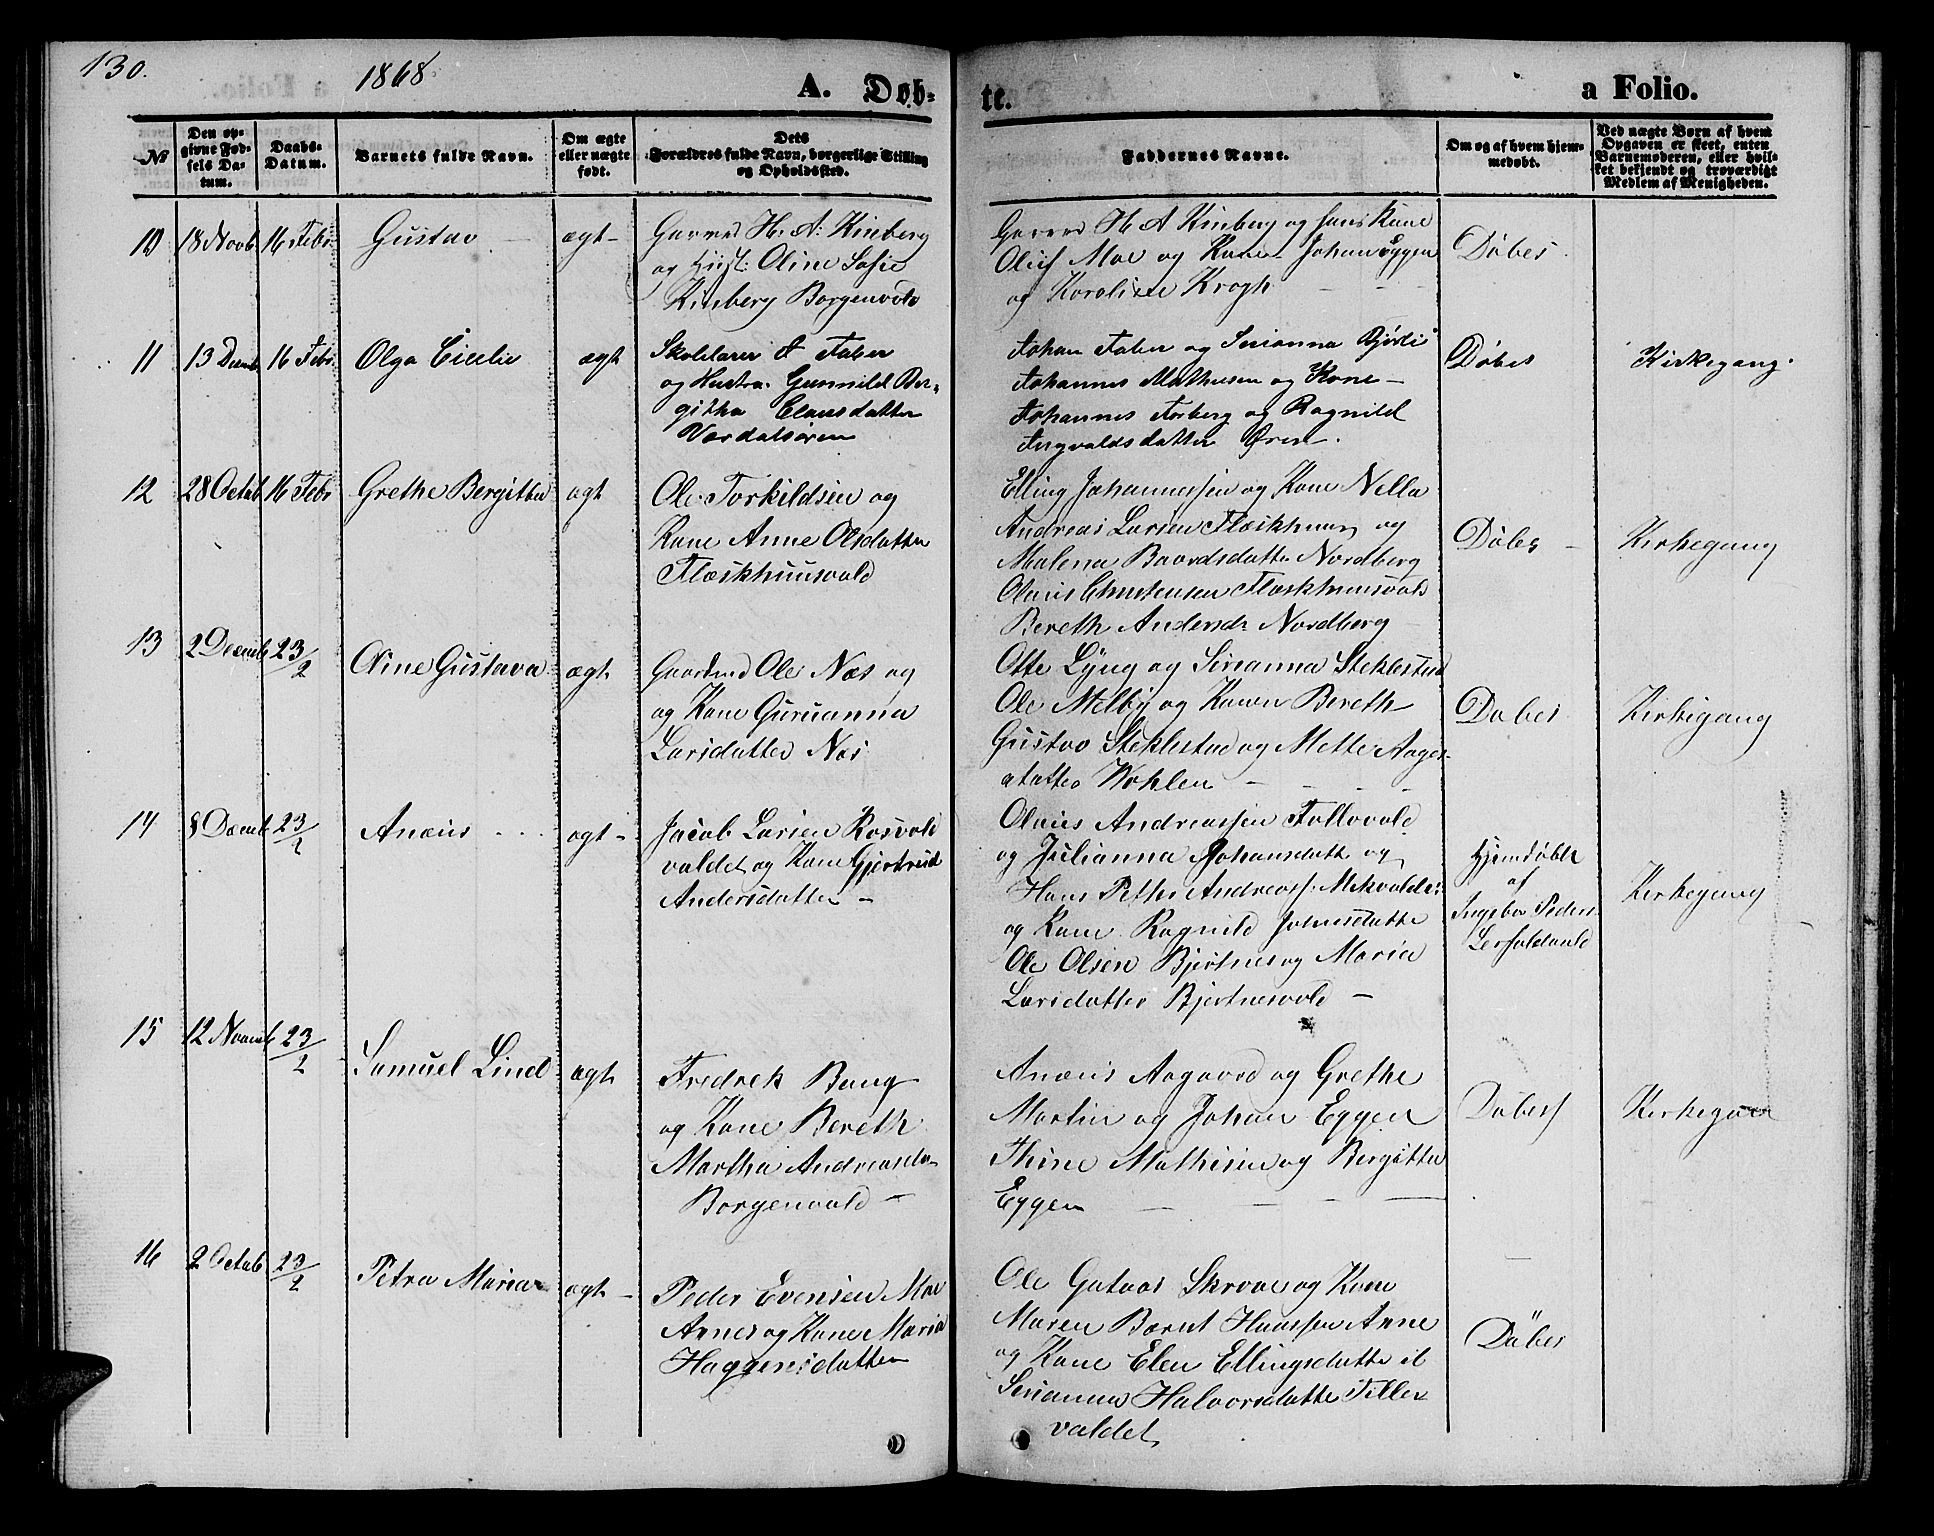 130.
1868
A. Døb-
te.
a Folio.
No
Den op-
givne Fød-
sels Da-
tum.
Daabs-
Datum.
Barnets fulde Navn.
Om ægte
eller uægte
født.
Dets
Forældres fulde Navn, borgerlige Stilling
og Opholdssted.
Faddernes Navne.
Om og af hvem hjem-
medøbt.
Ved uægte Børn af hvem
Opgaven er skeet, enten
Barnemoderen, eller hvil-
ket bekjendt og troværdigt
Medlem af Menigheden.
10
18 Novb
16 Febr
Gustav
ægt
H. A. Kinberg
og Oline Sofie
Kinberg Borgenvold
H. A Kinberg og hans Kone
Oluf Moe og Kone Johan Eggen
og Karoline Krogh
Døbes
11
13 Decemb
16 Febr
Olga Cicelie
ægt
Skolelærer A Faber
og Hustru Gunnild Ber-
githa Clausdatter
Værdalsøren
Johan Faber og Serianna
Johannes Mathiesen og Kone
Johannes Forberg og Ragnild
Ingvaldsdatter Øren.
Døbes
Kirkegang.
12
28 Octob
16 Febr
Grethe Bergitha
ægt
Ole Torkildsen og
Kone Anne Olsdatter
Flæskhuusvald
Elling Johannessen og Kone Nella
Andreas Larsen Flæskhuus og
Malena Baardsdatter Nordberg
Olaus Christensen Flæskhuusvald
Bereth Andersdr Nordberg
Døbes
Kirkegang
13
2 Decemb
23/2
Oline Gustava
ægt
Gaardmd Ole Næs og
og Kone Guruanna
Larsdatter Næs
Otte Lyng og Serianna Steklestad
Ole Melby og Karen Bereth
Gustav Steklestad og Mette Aages-
datter Wohlen
Døbes
Kirkegang
14
8 Decemb
23/2
Anæus
ægt
Jacob Larsen Rosvold
valdet og Kone Gjertrud
Andersdatter
Olaus Andreassen Follovald
og Julianna Johansdatter og
Hans Petter Andreass. Mikvaldet
og Kone Ragnild Johnsdatter
Ole Olsen Bjertnes og Maria
Larsdatter Bjertnesvald
Hjemdøbt
af
Ingebor Peders
Lerfaldvald
Kirkegang
15
12 Novemb
23/2
Samuel Lind
ægt
Fredrek Bang
og Kone Bereth
Martha Andreasda
Borgenvald
Anæus Aagaard og Grethe
Martin og Johan Eggen
Thine Mathisen og Bergitte
Eggen
Døbes
Kirkegang
16
2 Octob
23/2
Petra Maria
ægt
Peder Evensen Moe
og Kone Maria
Haggensdatter
Ole Skrove og Kone
Maren Bærnt Hanssen Anne
og Kone Elen Ellingsdatte
Serianna Halvorsdatte Tiller
valdet
Døbes